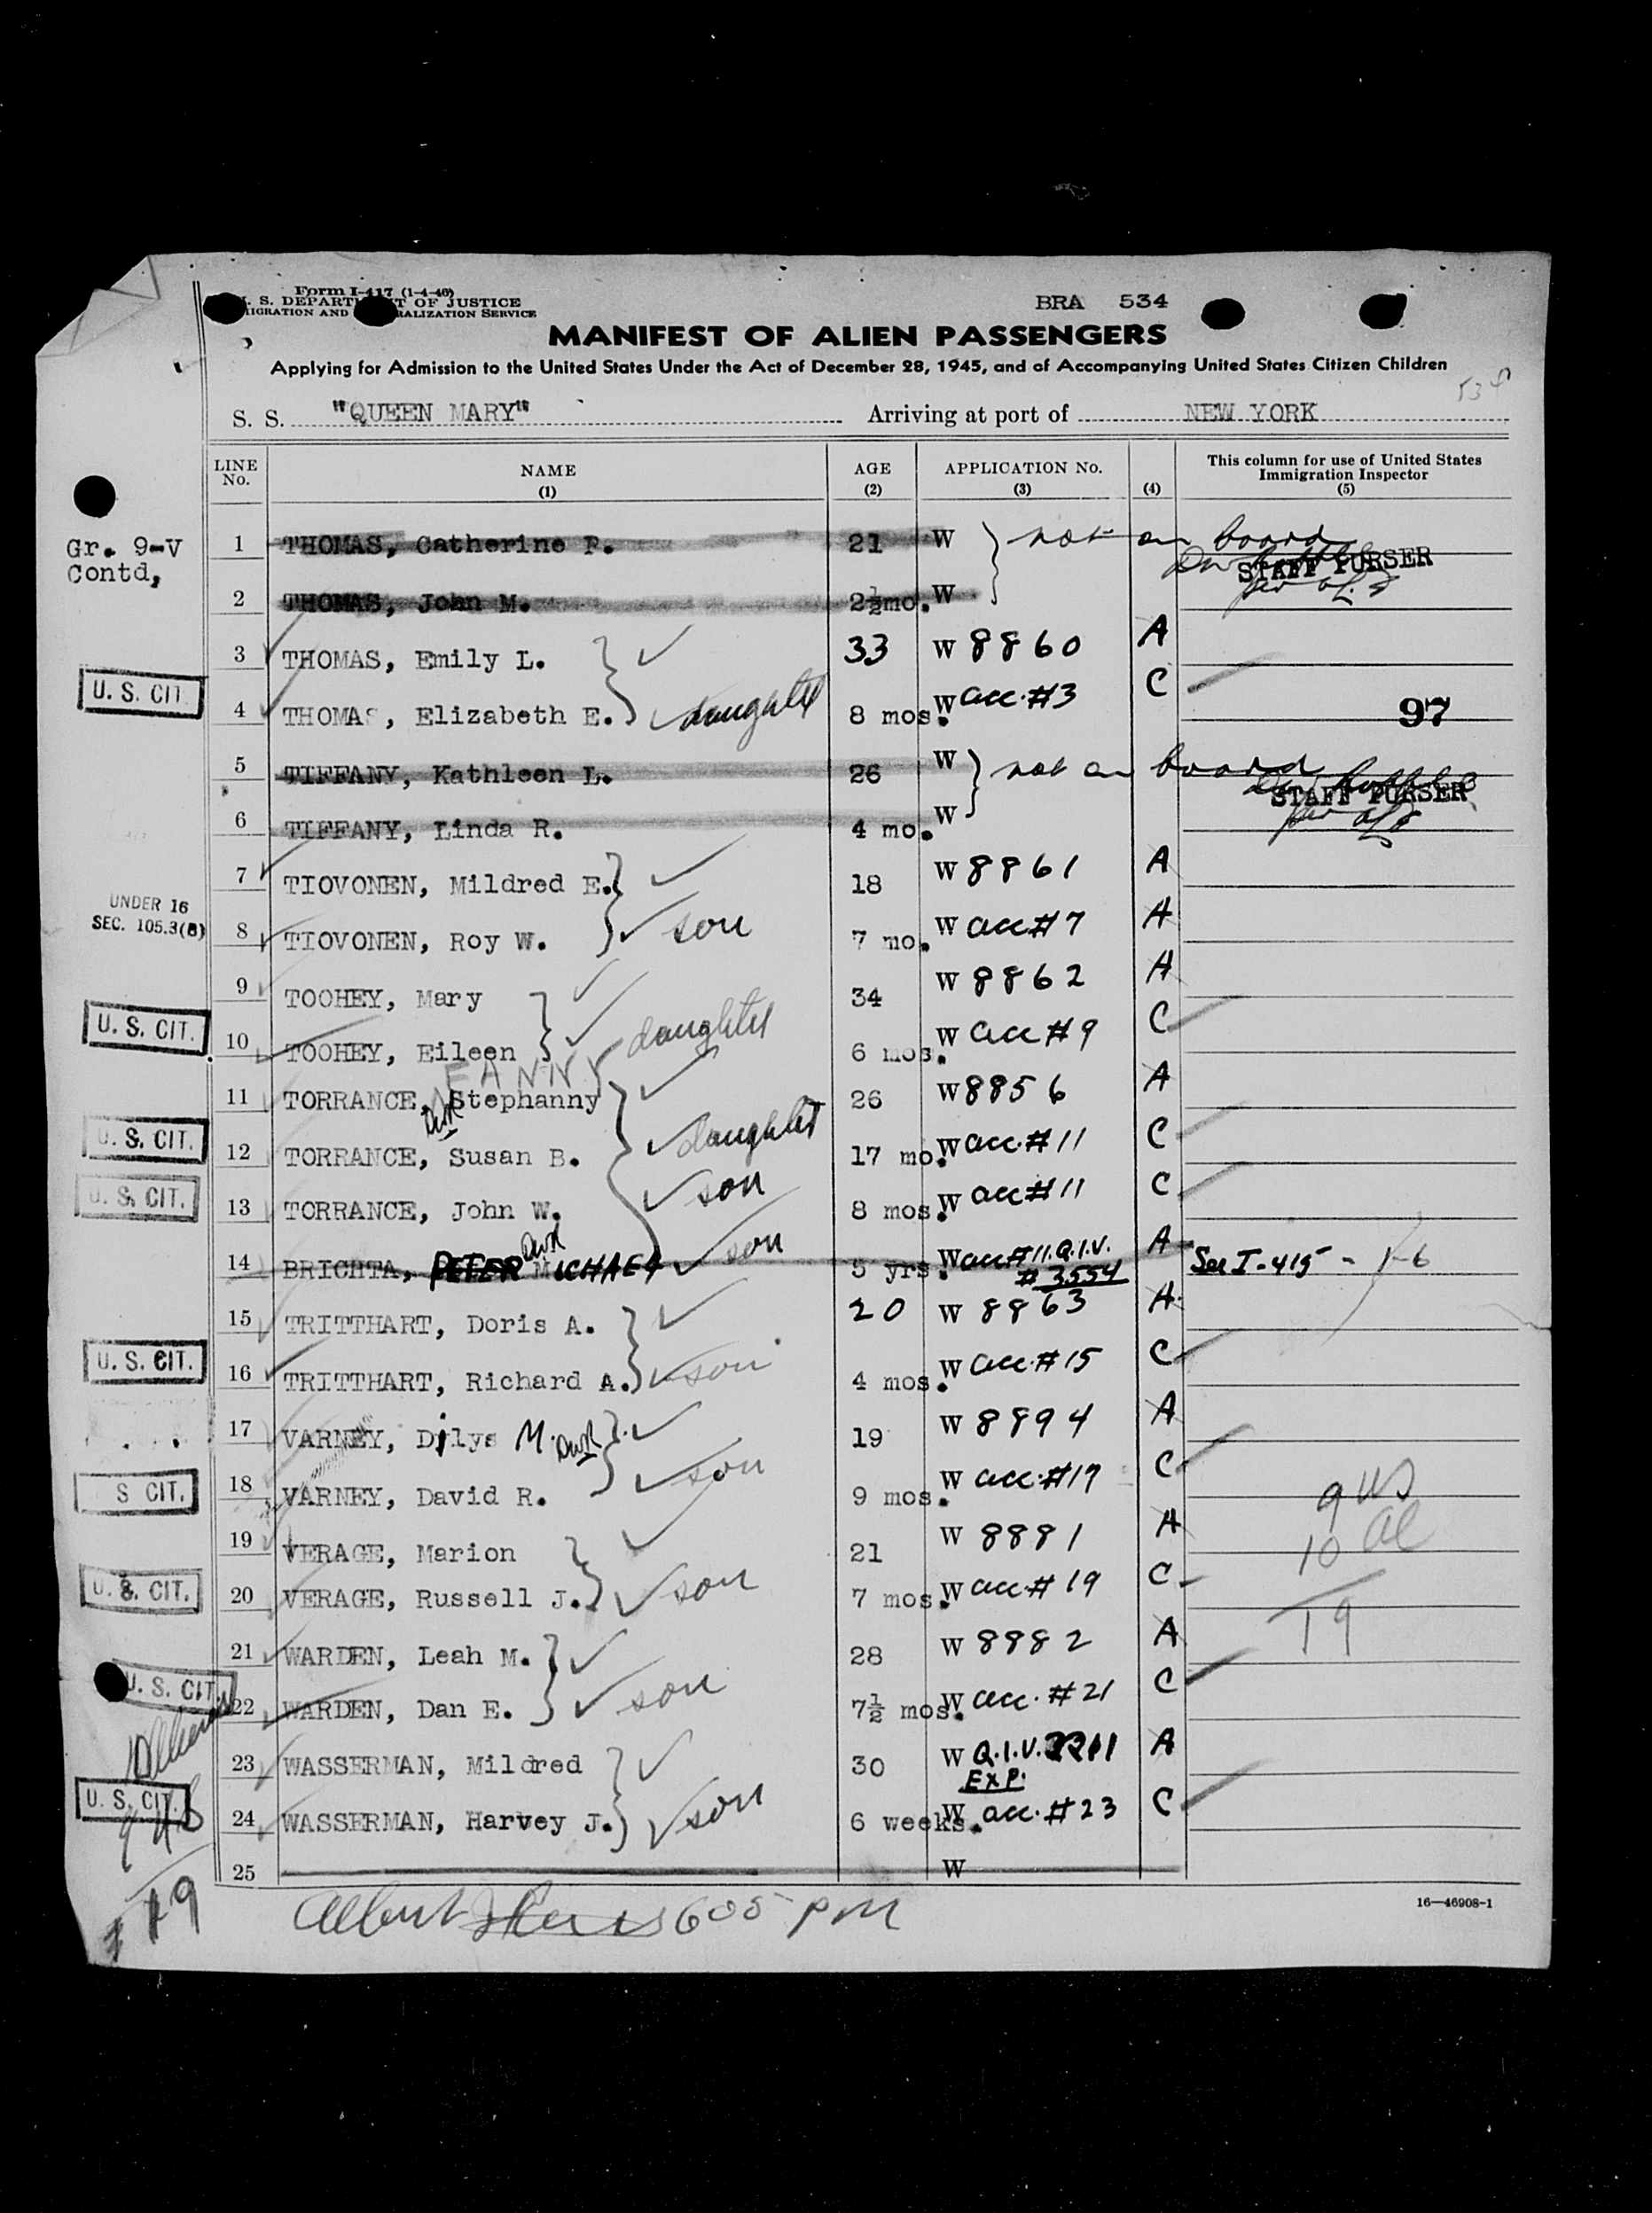 Form I-417 (1-4-46)
U. S. DEPARTMENT OF JUSTICE
IMMIGRATION AND NATURALIZATION SERVICE
BRA 534
MANIFEST OF ALIEN PASSENGERS
Applying for Admission to the United States Under the Act of December 28, 1945, and of Accompanying United States Citizen Children
534
S. S. "QUEEN MARY" Arriving at port of NEW YORK
LINE No. NAME (1) AGE (2) APPLICATION No. (3) (4) This column for use of United States Immigration Inspector (5)
Gr. 9-V
Contd,
1 THOMAS, Catherine F. 21 W not on board
STAFF PURSER
2 THOMAS, John M. 2½mo. W
3 THOMAS, Emily L. 33 W 8860 A
U. S. CIT. 4 THOMAS, Elizabeth E. daughter 8 mos. W acc. #3 C
97
5 TIFFANY, Kathleen L. 26 W not on board
STAFF PURSER
6 TIFFANY, Linda R. 4 mo. W
7 TIOVONEN, Mildred E. 18 W 8861 A
UNDER 16
SEC. 105.3(B)
8 TIOVONEN, Roy W. son 7 mo. W acc #7 A
9 TOOHEY, Mary 34 W 8862 A
U. S. CIT. 10 TOOHEY, Eileen daughter 6 mos. W acc #9 C
EANNY
11 TORRANCE, Stephanny 26 W 8856 A
U. S. CIT. 12 TORRANCE, Susan B. daughter 17 mo. W acc. #11 C
U. S. CIT. 13 TORRANCE, John W. son 8 mos. W acc #11 C
14 BRICHTA, PETER MICHAEL son 5 yrs. W acc #11. Q.I.V. # 3554 A See I-415 - 1-6
15 TRITTHART, Doris A. 20 W 8863 A
U. S. CIT. 16 TRITTHART, Richard A. son 4 mos. W acc. #15 C
17 VARNEY, Dilys M. 19 W 8894 A
S CIT. 18 VARNEY, David R. son 9 mos. W acc. #17 C
9 US
19 VERAGE, Marion 21 W 8881 A
10 al
U. S. CIT. 20 VERAGE, Russell J. son 7 mos. W acc. #19 C
19
21 WARDEN, Leah M. 28 W 8982 A
U. S. CIT. 22 WARDEN, Dan E. son 7½ mos. W acc. #21 C
23 WASSERMAN, Mildred 30 W Q.I.V. 2211 EXP. A
U. S. CIT. 24 WASSERMAN, Harvey J. son 6 weeks. W acc. #23 C
25 W
19
Albert 605 PM
16—46908-1